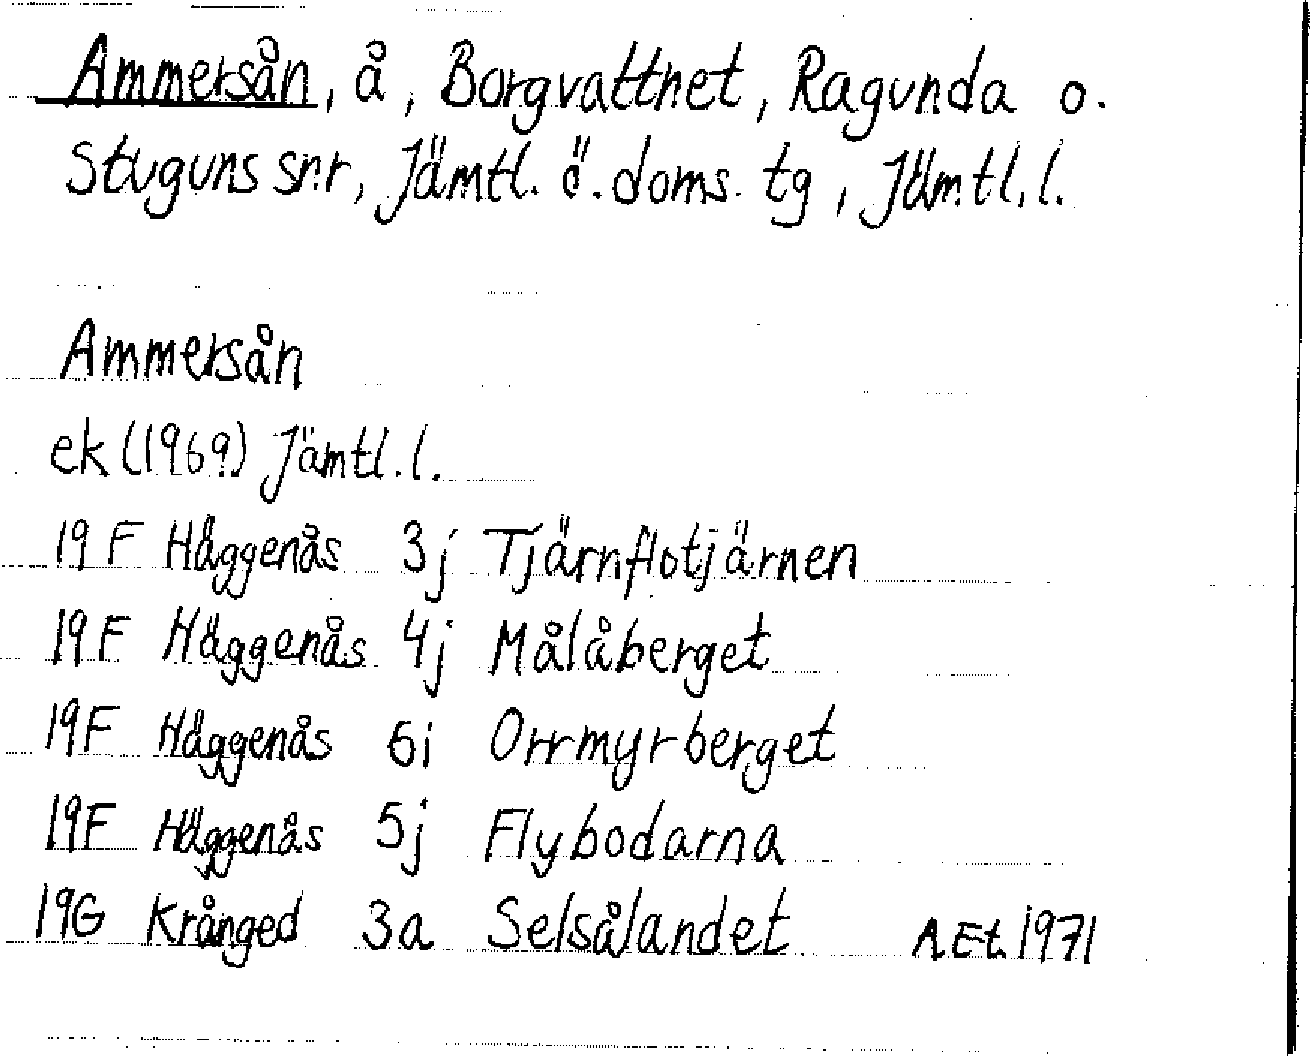 Ammersån, å, Borgvattnet, Ragunda o.
Stuguns snr, Jämtl. ö. doms. tg, Jämtl. l.
Ammersån
ek (1969) Jämtl. l.
19 F Häggenås 3j Tjärnflotjärnen
19 F Häggenås 4j Målåberget
19F Häggenås 6i Orrmyrberget
19F Häggenås 5j Flybodarna
19G Krånged 3a Selsålandet A.Et. 1971